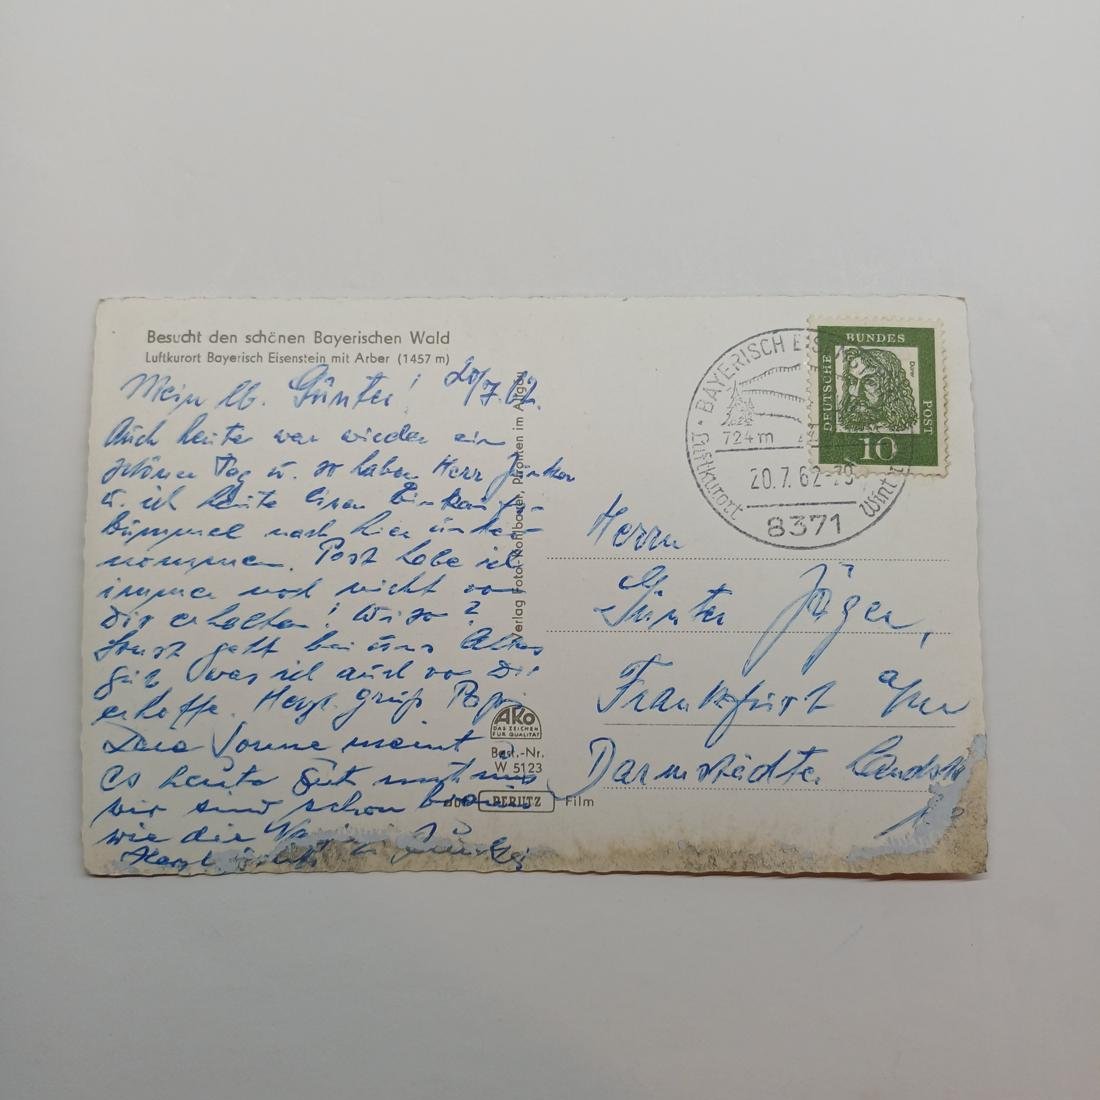 Besucht den schönen Bayerischen Wald
Luftkurort Bayerisch Eisenstein mit Arber (1457 m)
20/7. 62.
Mein lb. Günter!
Auch heute war wieder ein
schöner Tag u. so haben Herr
u. ich heute einen Einkaufs-
bummel nach hier unter-
nommen. Post habe ich
immer noch nicht von
Dir erhalten! Wieso?
Sonst geht bei uns Alles
gut was ich auch von Dir
erhoffe. Herzl. Gruß Papi
Die Sonne meint
es heute gut mit uns
wir sind schon braun
wie die
Herzl.
Verlag Foto-Kohlbauer, Pfronten im Allgäu
AKO
DAS ZEICHEN
FÜR QUALITÄT
Best.-Nr.
W 5123
auf PERUTZ Film
BAYERISCH EIS
724 m
20.7.62-
Luftkurort
Wint
8371
DEUTSCHE
BUNDES
POST
Dürer
10
Herrn
Günter Jäger,
Frankfurt a/m
Darmstädter Landstr